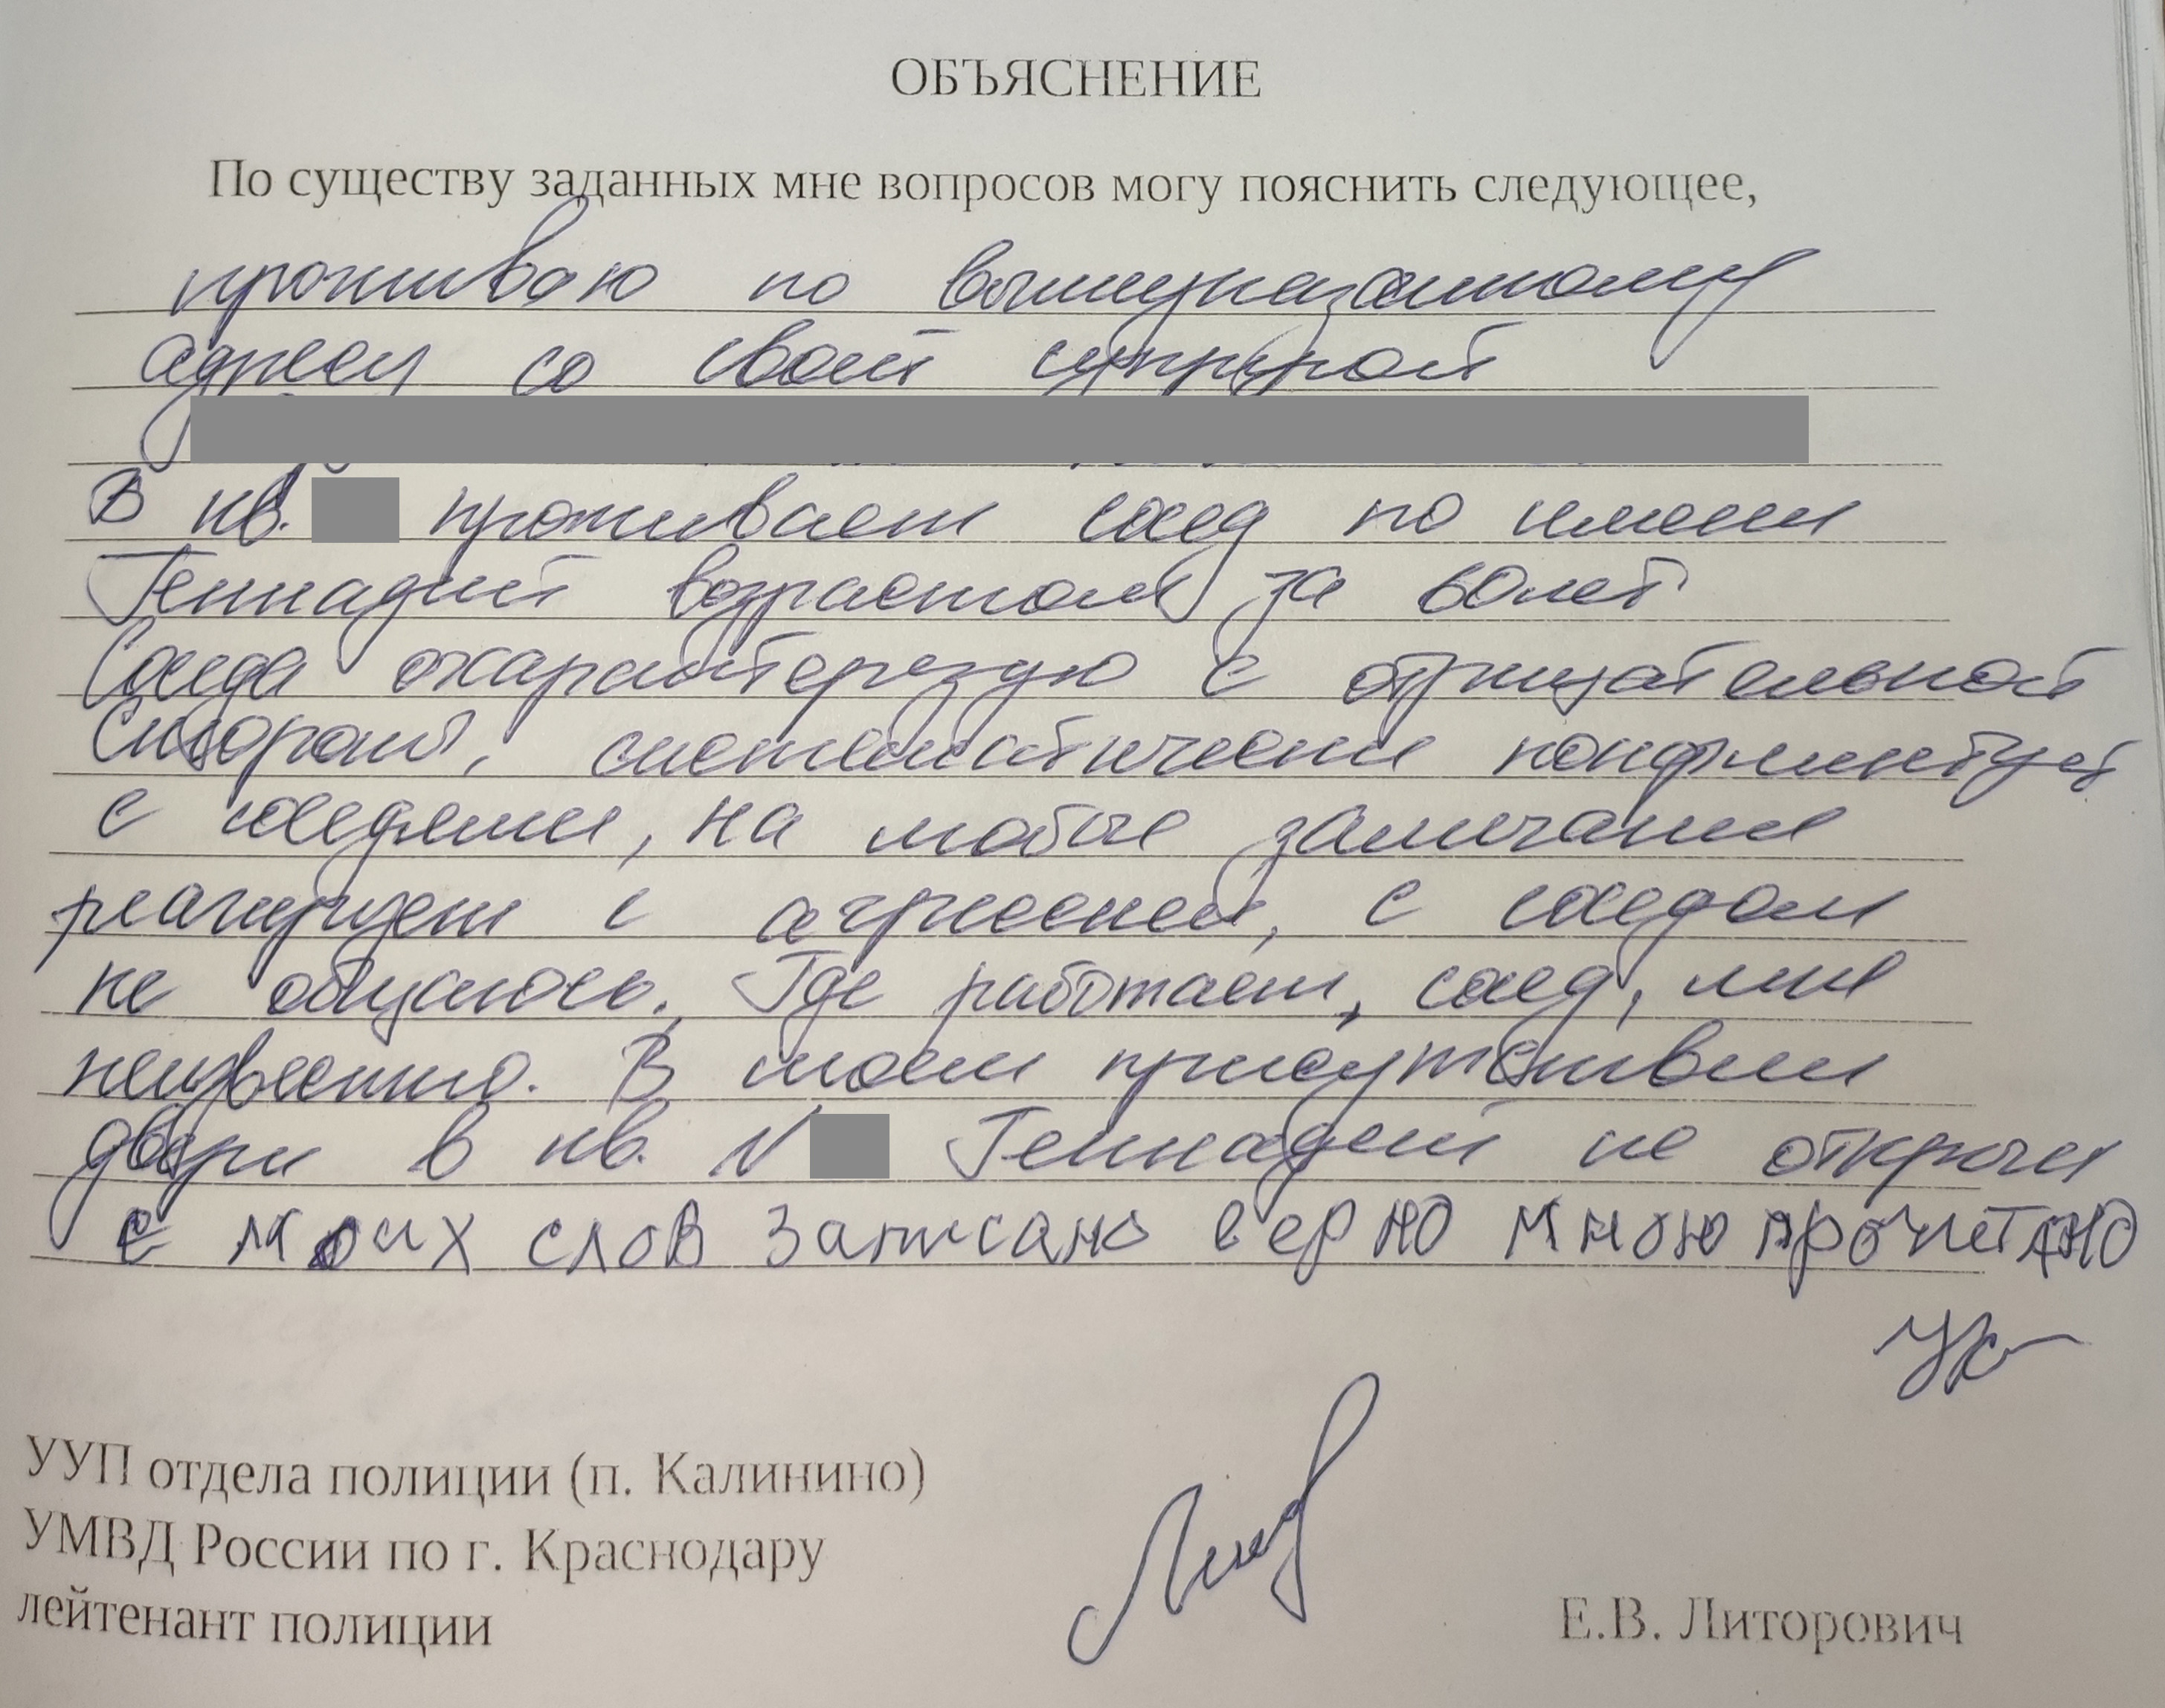 ОБЪЯСНЕНИЕ
По существу заданных мне вопросов могу пояснить следующее,
проживаю по вышеуказанному
адресу со своей супругой
В кв. проживает сосед по имени
Геннадий возрастом за 60 лет
Соседа охарактерезую с отрицательной
стороны, систематически конфликтует
с соседями, на любые замичания
реагирует с агрессией, с соседом
не общаюсь. Где работает, сосед, мне
неизвестно. В моем присутствии
двери в кв. N Геннадий не открыл
с моих слов записано верно мною прочитано
УУП отдела полиции (п. Калинино)
УМВД России по г. Краснодару
лейтенант полиции
Е.В. Литорович